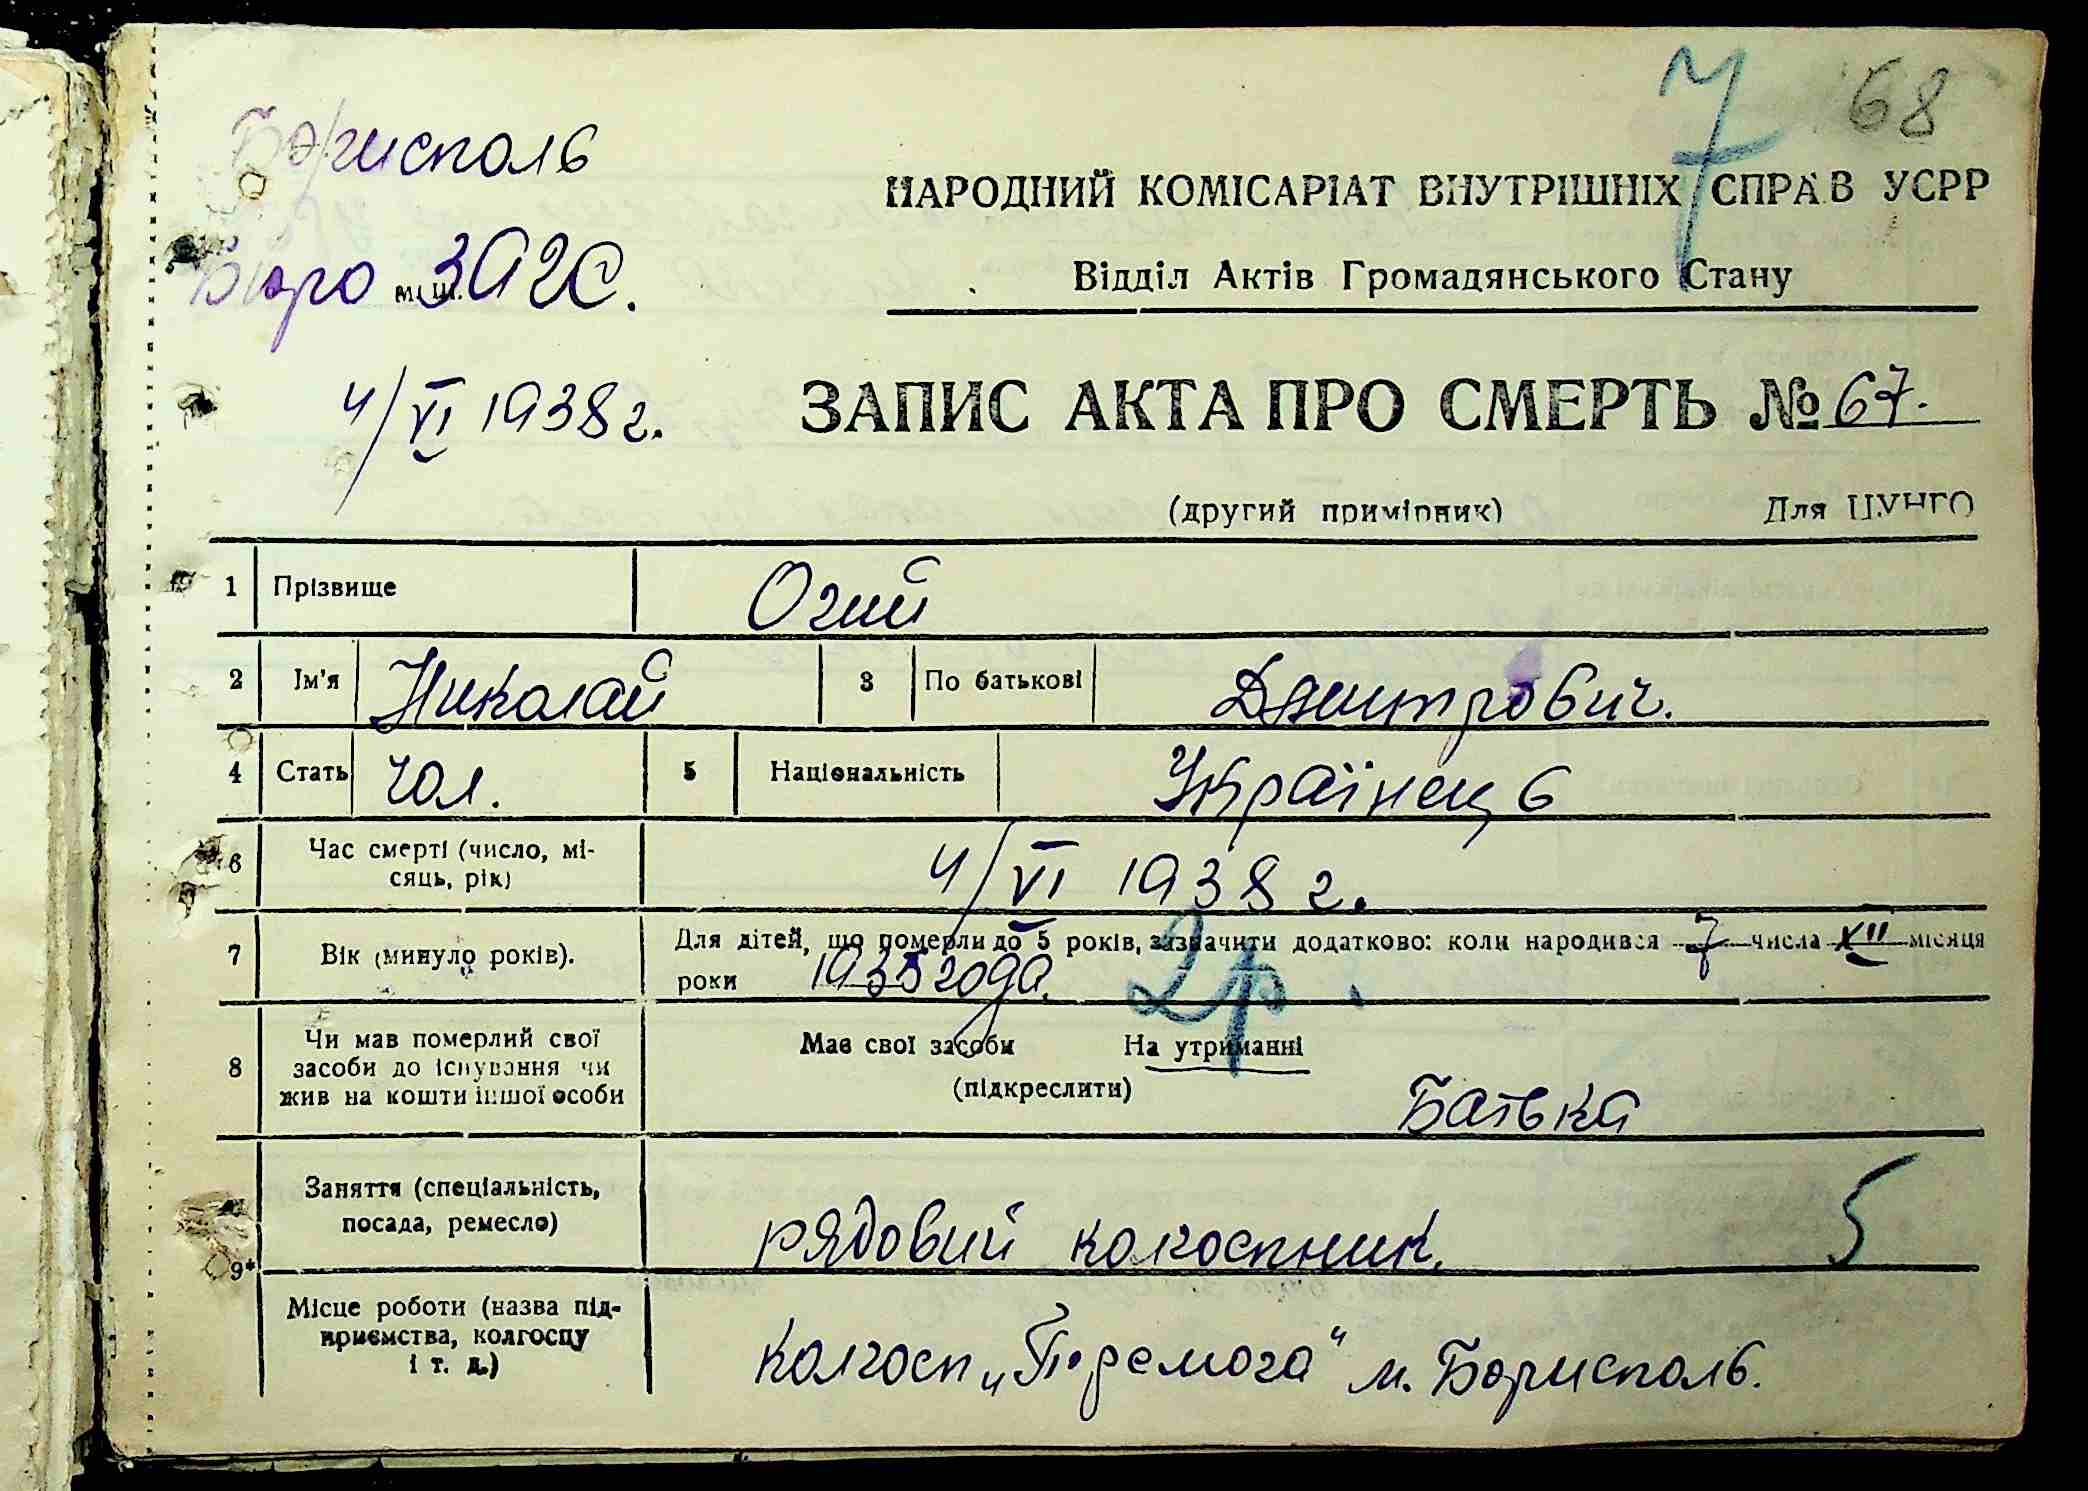 7 68
Борисполь
НАРОДНИЙ КОМІСАРІАТ ВНУТРІШНІХ СПРАВ УСРР
Бюро ЗАГС.
Відділ Актів Громадянського Стану
4/VI 1938 г.
ЗАПИС АКТА ПРО СМЕРТЬ № 67.
(другий примірник) Для ЦУНГО
1 Прізвище Огий
2 Ім'я Николай 3 По батькові Дмитрович.
4 Стать чол. 5 Національність Українець
6 Час смерті (число, мі-
сяць, рік) 4/VI 1938 г.
7 Вік (минуло років). Для дітей, що померли до 5 років, зазначити додатково: коли народився 7 числа XII місяця
роки 1935 года. 2р.
8 Чи мав померлий свої
засоби до існування чи
жив на кошти іншої особи
Має свої засоби На утриманні
(підкреслити)
Батька
Заняття (спеціальність,
посада, ремесло) рядовий колгоспник. 5
9*
Місце роботи (назва під-
приємства, колгоспу
і т. д.) колгосп „Перемога" м. Борисполь.